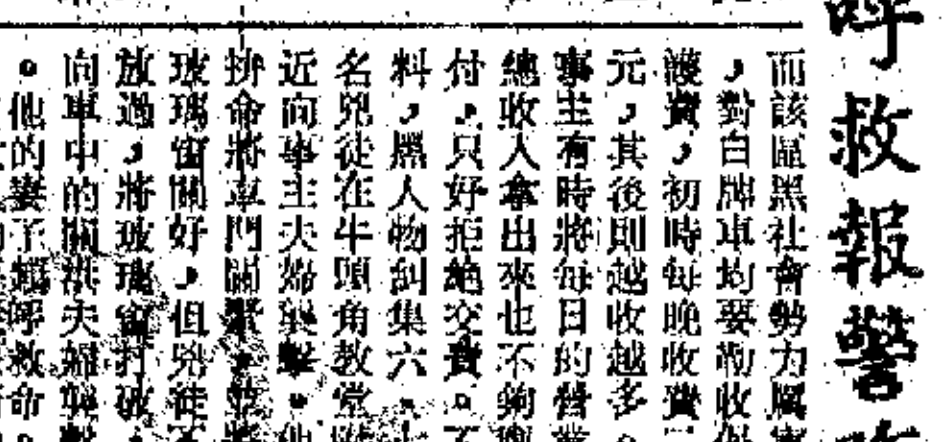 呼救報警
而該區黑社會勢力
,對白牌車均要勒收
護費,初時每晚收費
元,其後則越收越多
事主有時將每日的營
總收入拿出來也不夠
付。只好拒絕交費。
料,黑人物糾集六七
名兇徒在牛頭角教堂
近向事主夫婦襲擊。
拚命將車門關緊
玻璃窗關好,但兇徒
放過,將玻璃窗打破
向車中的關洪夫婦襲擊
。他的妻子
呼救命。